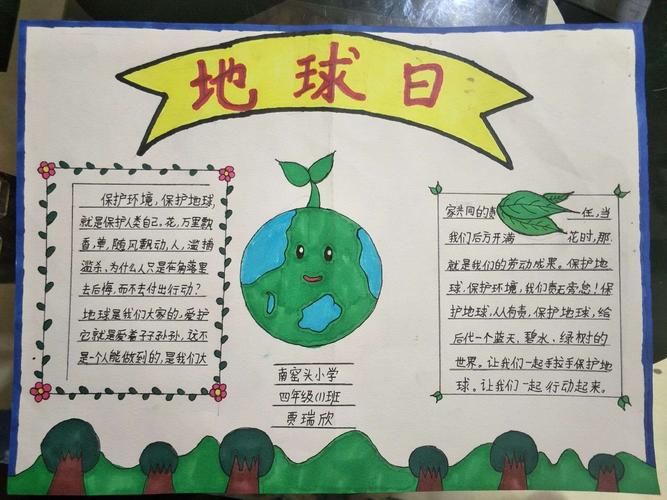 地球日
保护环境,保护地球,
就是保护人类自己。花,万里飘
香,草,随风飘动,人,滥捕
滥杀、为什么人只是在角落里
去后悔,而不去付出行动?
地球是我们大家的,爱护
它就是爱着子子孙孙,这不
是一个人能做到的,是我们大
南窑头小学
四年级(1)班
贾瑞欣
家共同的责 任,当
我们后方开满 花时,那
就是我们的劳动成果。保护地
球,保护环境,我们责无旁怠!保
护地球,人人有责,保护地球,给
后代一个蓝天、碧水、绿树的
世界。让我们一起手拉手保护地
球。让我们一起行动起来。